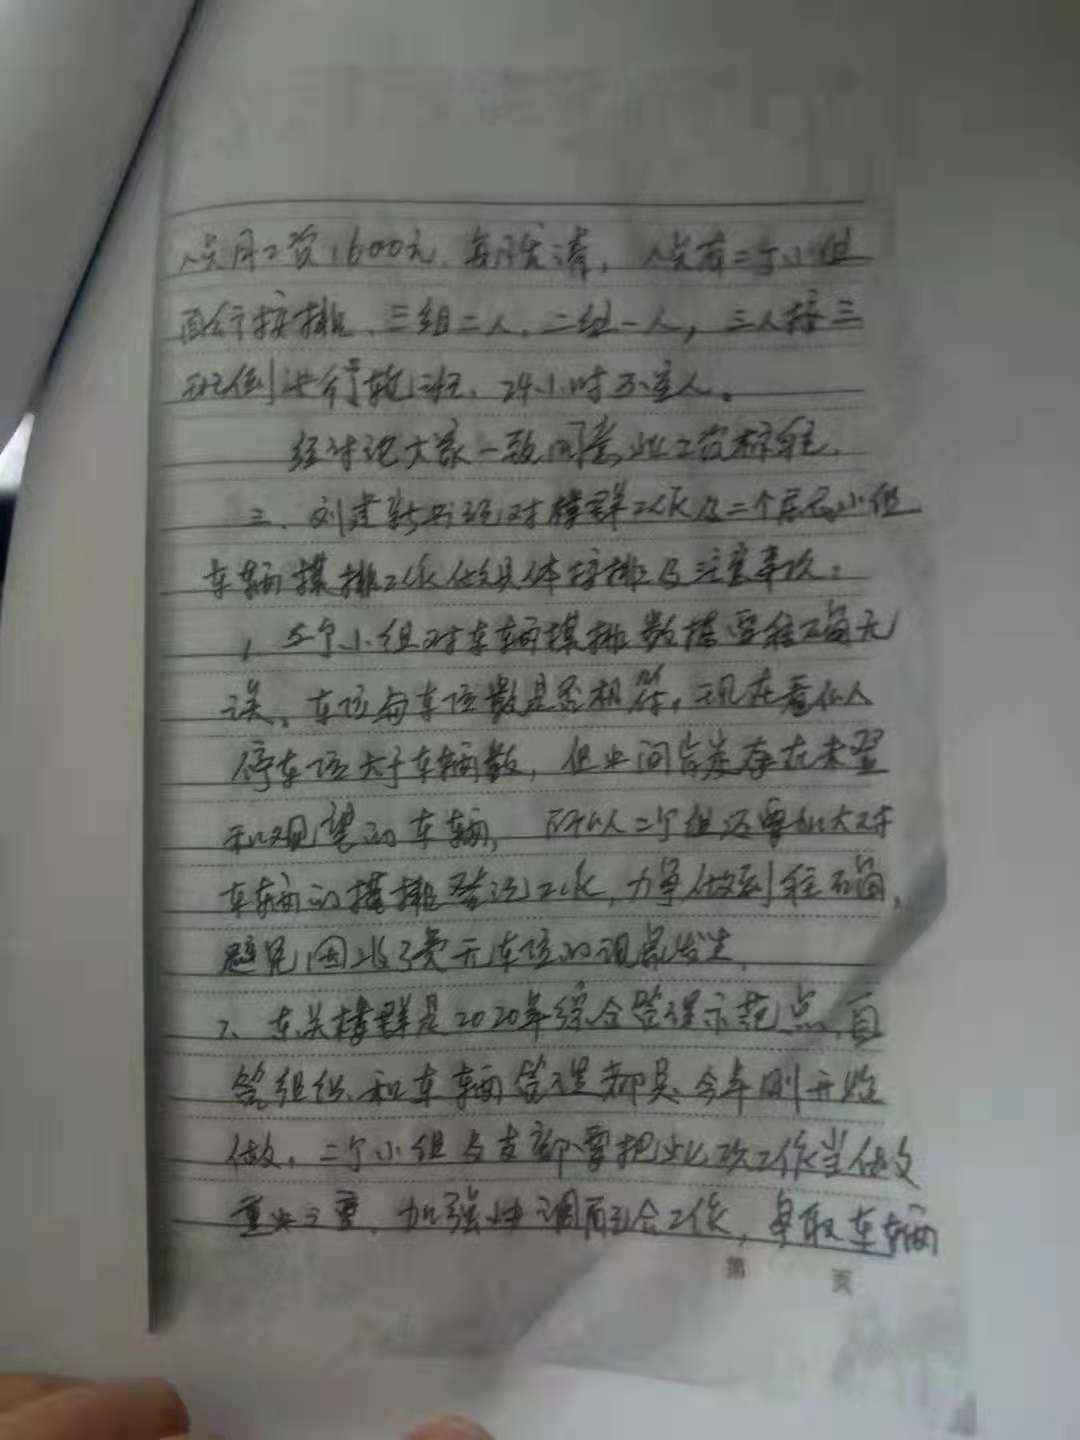 人员月工资1600元,每月发清,人员有二个小组
自行按排、三组二人,二组一人,三人按三
班倒进行轮班,24小时不空人。
经讨论大家一致同意此工资标准,
三、刘建新书记对楼群工作及二个居民小组
车辆摸排工作做具体按排及注意事项:
1、5个小组对车辆摸排数据要准确无
误,车位与车位数是否相符,现在看似
停车位大于车辆数,但中间肯定存在未登
和观望的车辆,所以二个组还要加大对
车辆的摸排登记工作,力争做到准确,
避免因收了费无车位的现象发生,
2、东关楼群是2020年综合管理示范点,自
管组织和车辆管理都是今年刚开始
做,二个小组与支部要把此项工作当做
重中之重,加强协调配合工作,争取车辆
第 页